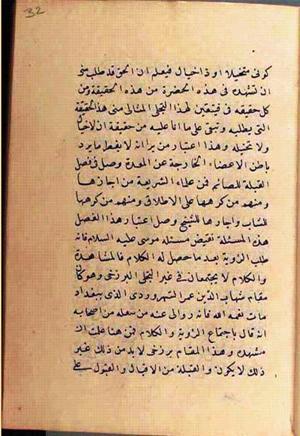 32
كونى متخيلا او ذا خيال فيعلم ان الحق قد طلب منى
ان نشهده فى هذه الحضرة من هذه الحقيقة ومن
كل حقيقة فيتعين لهذا التجلى المثالى منى هذه الحقيقة
التى يطلبه وتبقى على ما انا عليه من حقيقة ان لا خيال
ولا تخيل وهذا اعتبار من يرى انه لا يفطر ما يرد
باطن الاعضاء الخارجة عن المعدة وصل فى فصل
القبلة للصائم فمن علماء الشريعة من اجازها
ومنهم من كرهها على الاطلاق ومنهم من كرهها
للشاب واجازها للشيخ وصل اعتبار هذا الفصل
هذه المسئلة نقيض مسئلة موسى عليه السلام فانه
طلب الرؤية بعد ما حصل له الكلام فالمشاهدة
والكلام لا يجتمعان فى غير التجلى البرزخى وهو كان
مقام شهاب الدين عمر السهروردى الذى ببغداد
مات رحمه الله فانه روى لى عنه من نقله من اصحابه
انه قال باجتماع الرؤية والكلام فمن هنا علمت ان
مشهده وهذا المقام برزخى لا بد من ذلك غير
ذلك لا يكون والقبلة من الاقبال والقبول على